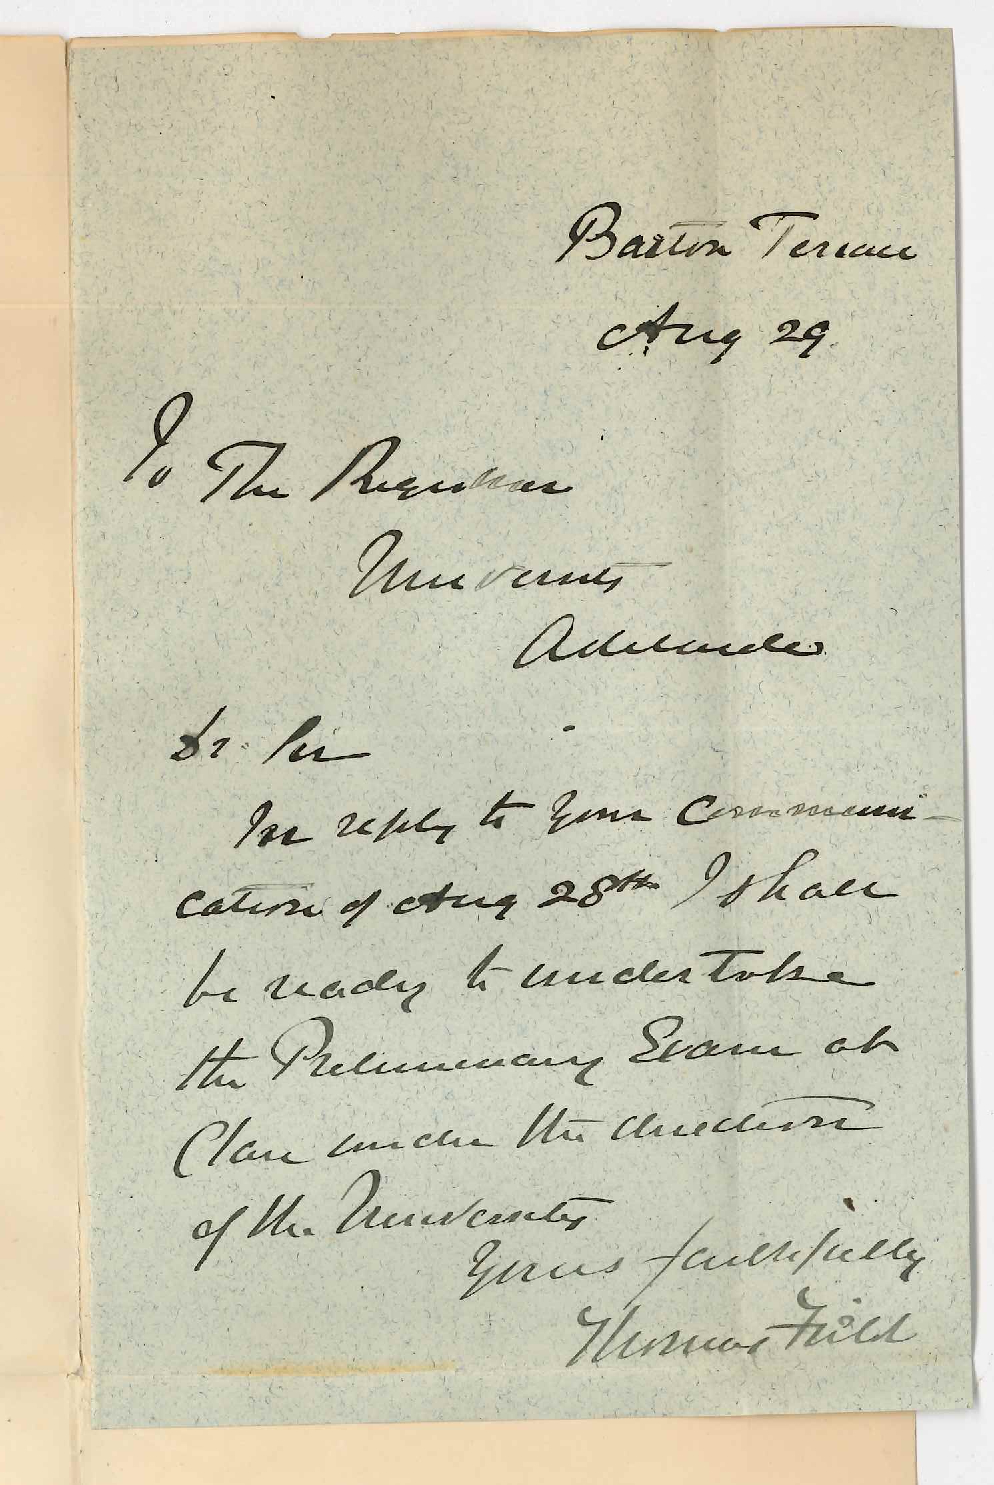 Barton Terrace
Aug 29
To The Registrar
University
Adelaide
Dr Sir
In reply to your communi-
cation of Aug 28th I shall
be ready to undertake
the Preliminary Exam at
Clare under the direction
of the University
Yours faithfully
Thomas Field